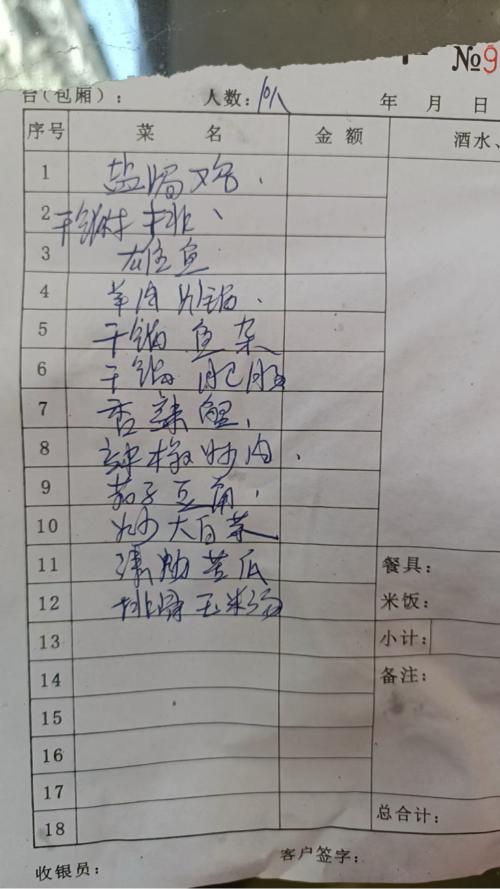 №9
台(包厢)： 人数：10人 年 月 日
序号 菜 名 金 额 酒水、
1 盐焗鸡、
2 干锅牛排、
3 雄鱼
4 羊肉火锅、
5 干锅鱼杂
6 干锅肥肠
7 香辣蟹、
8 辣椒炒肉、
9 茄子豆角、
10 炒大白菜
11 清炒苦瓜 餐具：
12 排骨玉米汤 米饭：
13 小计：
14 备注：
15
16
17
18 总合计：
收银员： 客户签字：